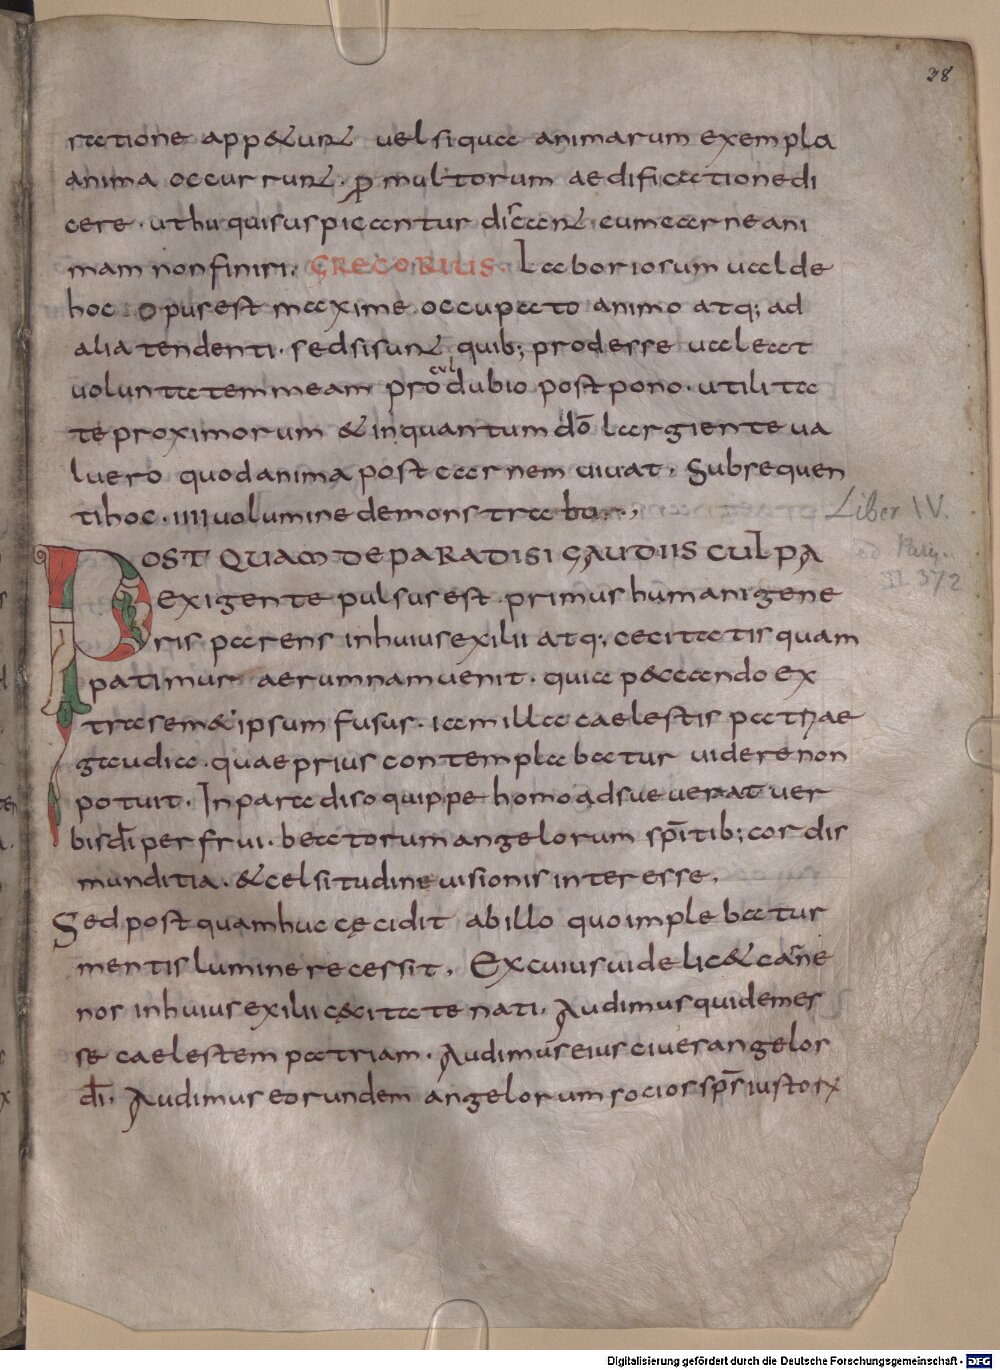 38
ratione app&unt uel si quae animarum exempla
anima occurrunt. p multorum aedificatione di
cere. ut hii qui suspicantur discant cum carne ani
mam non finiri. GREGORIUS. Laboriosum ualde
hoc opus est maxime occupato animo atq; ad
alia tendenti. sed si sunt quib; prodesse ualeat
uoluntatem meam pro cul dubio postpono. utilita
te proximorum & in quantum dō largiente ua
luero quod anima post carnem uiuat. Subsequen
ti hoc. IIII uolumine demonstrabo.,
Liber IV.
ed Paris.
II 372
POST QUAM DE PARADISI GAUDIIS CULPA
exigente pulsus est primus humani gene
ris parens in huius exilii atq; cecitatis quam
patimur aerumnam uenit. quia peccando ex
tra sem&ipsum fusus. iam illa caelestis patriae
gaudia. quae prius contemplabatur uidere non
potuit. In paradiso quippe homo adsueuerat uer
bis dī perfrui. beatorum angelorum spītib; cordis
munditia. & celsitudine uisionis interesse.
Sed post quam huc cęcidit ab illo quo implebatur
mentis lumine recessit. Ex cuius uidelic& carne
nos in huius exilii cęcitate nati. Audimus quidem es
se caelestem patriam. Audimus eius ciues angelos
dī. Audimus eorundem angelorum socios sps iustorꝝ
Digitalisierung gefördert durch die Deutsche Forschungsgemeinschaft - DFG